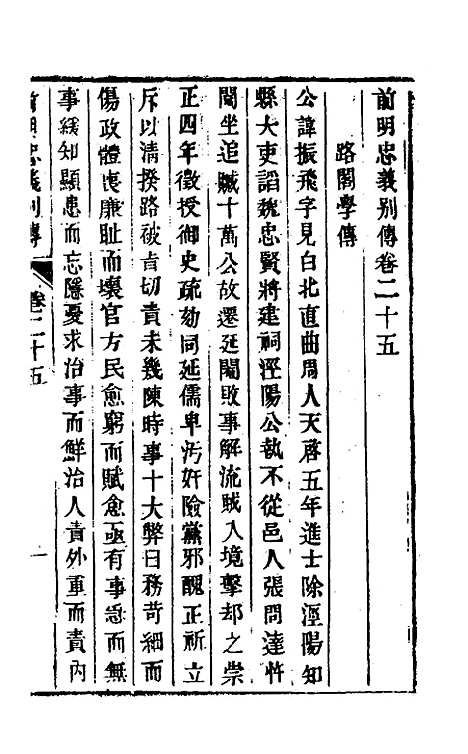 前明忠義别傳卷二十五
路閣學傳
公諱振飛字見白北直曲周人天啓五年進士除涇陽知
縣大吏謟魏忠賢將建祠涇陽公執不從邑人張問達忤
閹坐追贓十萬公故遷延閹敗事解流賊入境擊却之崇
正四年徵授御史疏劾同延儒卑汚奸險黨邪醜正祈立
斥以清揆路被旨切責未幾陳時事十大弊曰務苛細而
傷政體喪廉耻而壞官方民愈窮而賦愈亟有事急而無
事緩知顯患而忘隱憂求治事而鮮治人責外重而責内
前明忠義别傳
卷二十五
一